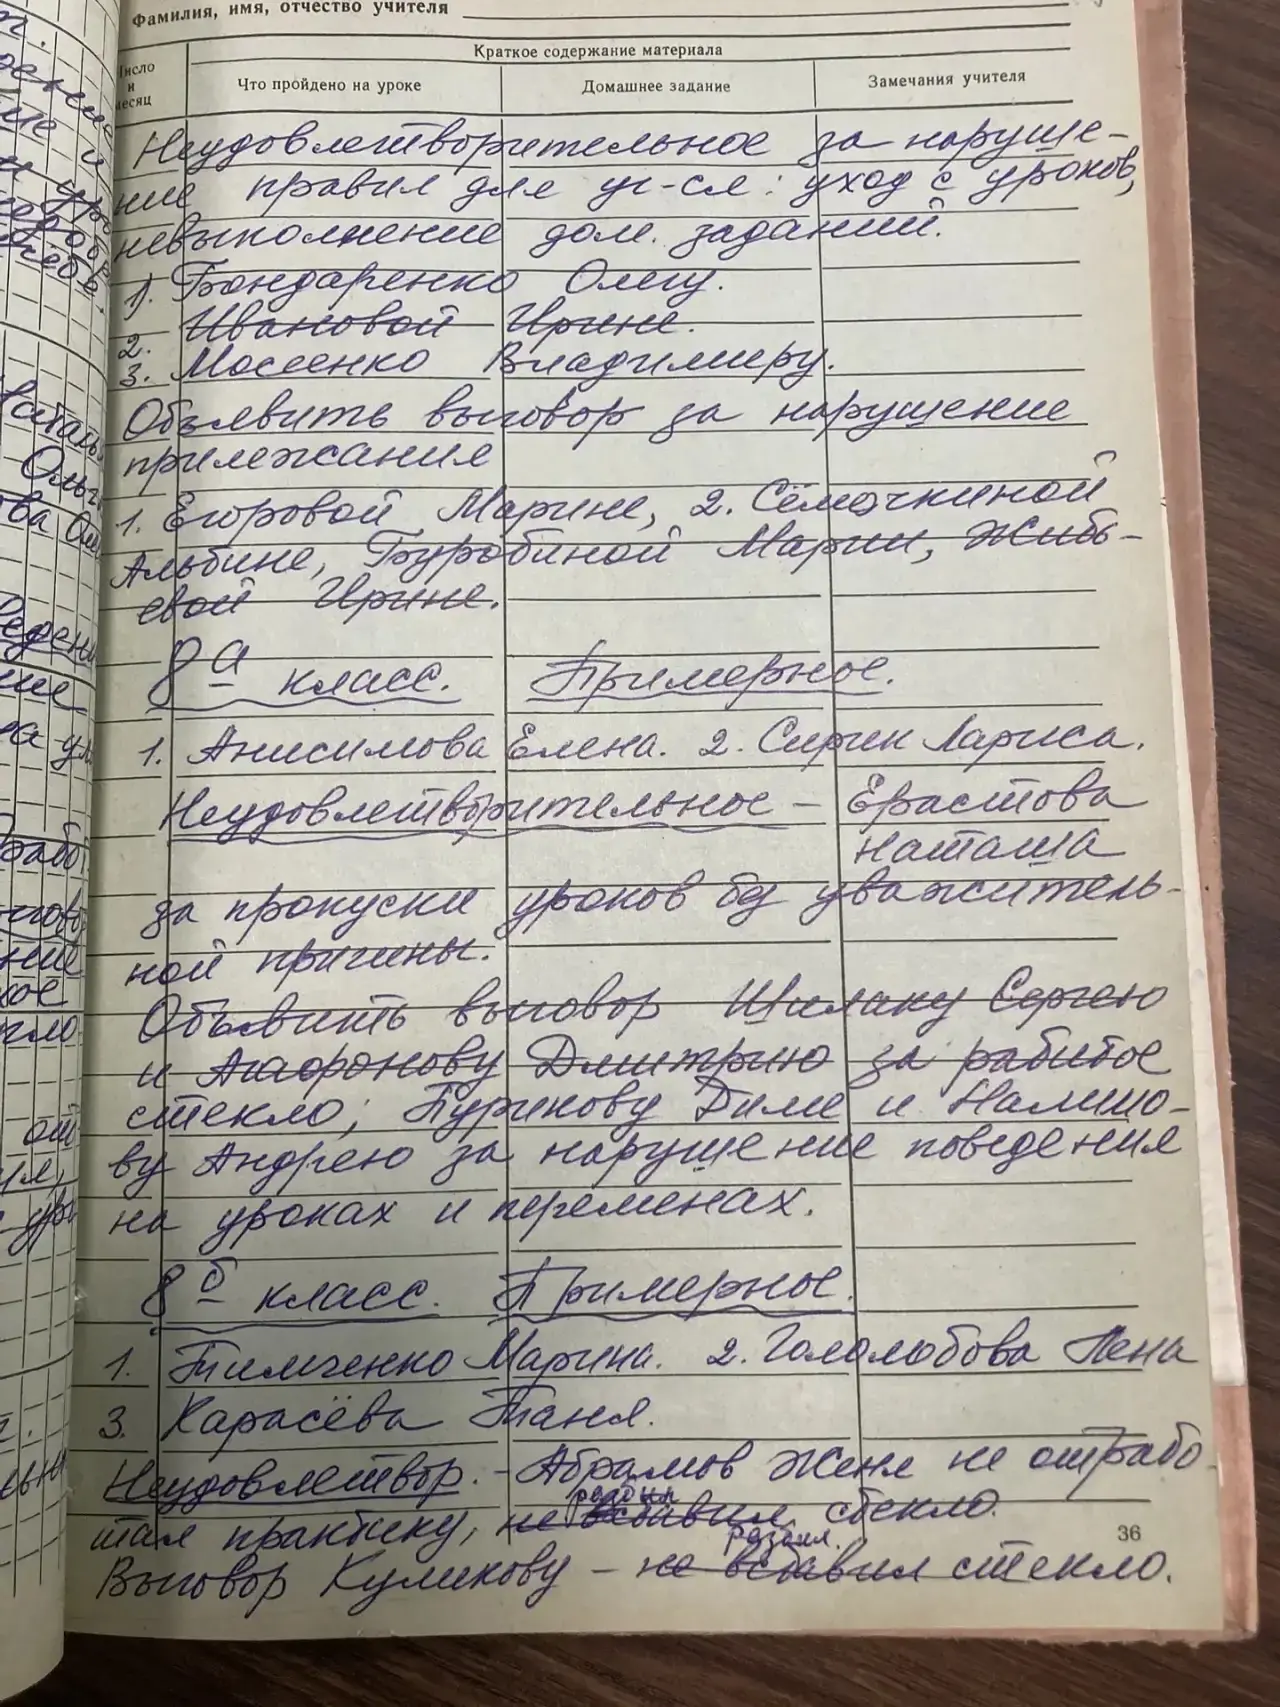 Фамилия, имя, отчество учителя
Краткое содержание материала
Число и месяц
Что пройдено на уроке
Домашнее задание
Замечания учителя
Неудовлетворительное за наруше-
ние правил для уч-ся: уход с уроков,
невыполнение дом. заданий.
1). Бондаренко Олегу.
2. Ивановой Ирине.
3. Мосеенко Владимиру.
Объявить выговор за нарушение
прилежания
1. Егоровой Марине, 2. Сёмочкиной
Альбине, Буробиной Марии,
евой Ирине.
8а класс. Примерное.
1. Анисимова Елена. 2. Сирик Лариса.
Неудовлетворительное – Ерастова
Наташа
за пропуски уроков без уважитель-
ной причины.
Объявить выговор Шилаку Сергею
и Агафонову Дмитрию за разбитое
стекло; Пуринову Диме и Налимо-
ву Андрею за нарушение поведения
на уроках и переменах.
8б класс. Примерное.
1. Тимченко Марина. 2. Гололобова Лена
3. Карасёва Таня.
Неудовлетвор. – Абрамов Женя не отрабо-
тал практику, не вставил стекло.
разбил.
36
Выговор Куликову – не вставил стекло.